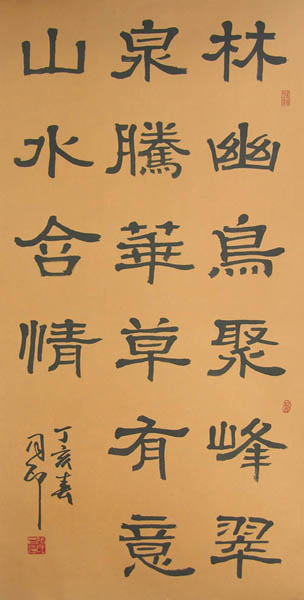 林幽鳥聚峰翠
泉騰華草有意
山水含情
丁亥春